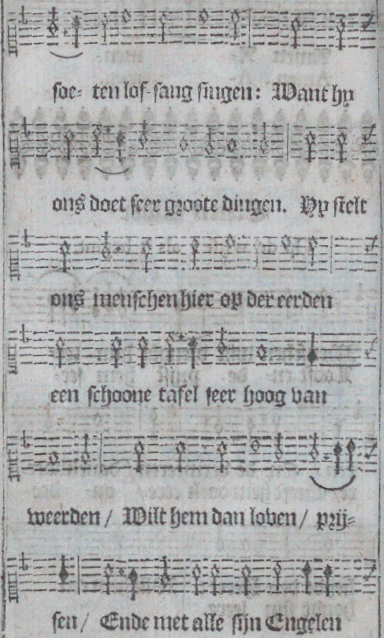 soe- ten lof-sang singen: Want hy
ons doet seer groote dingen. Hy stelt
ons menschen hier op der eerden
een schoone tafel seer hoog van
weerden / Wilt hem dan loven / prij-
sen / Ende met alle sijn Engelen